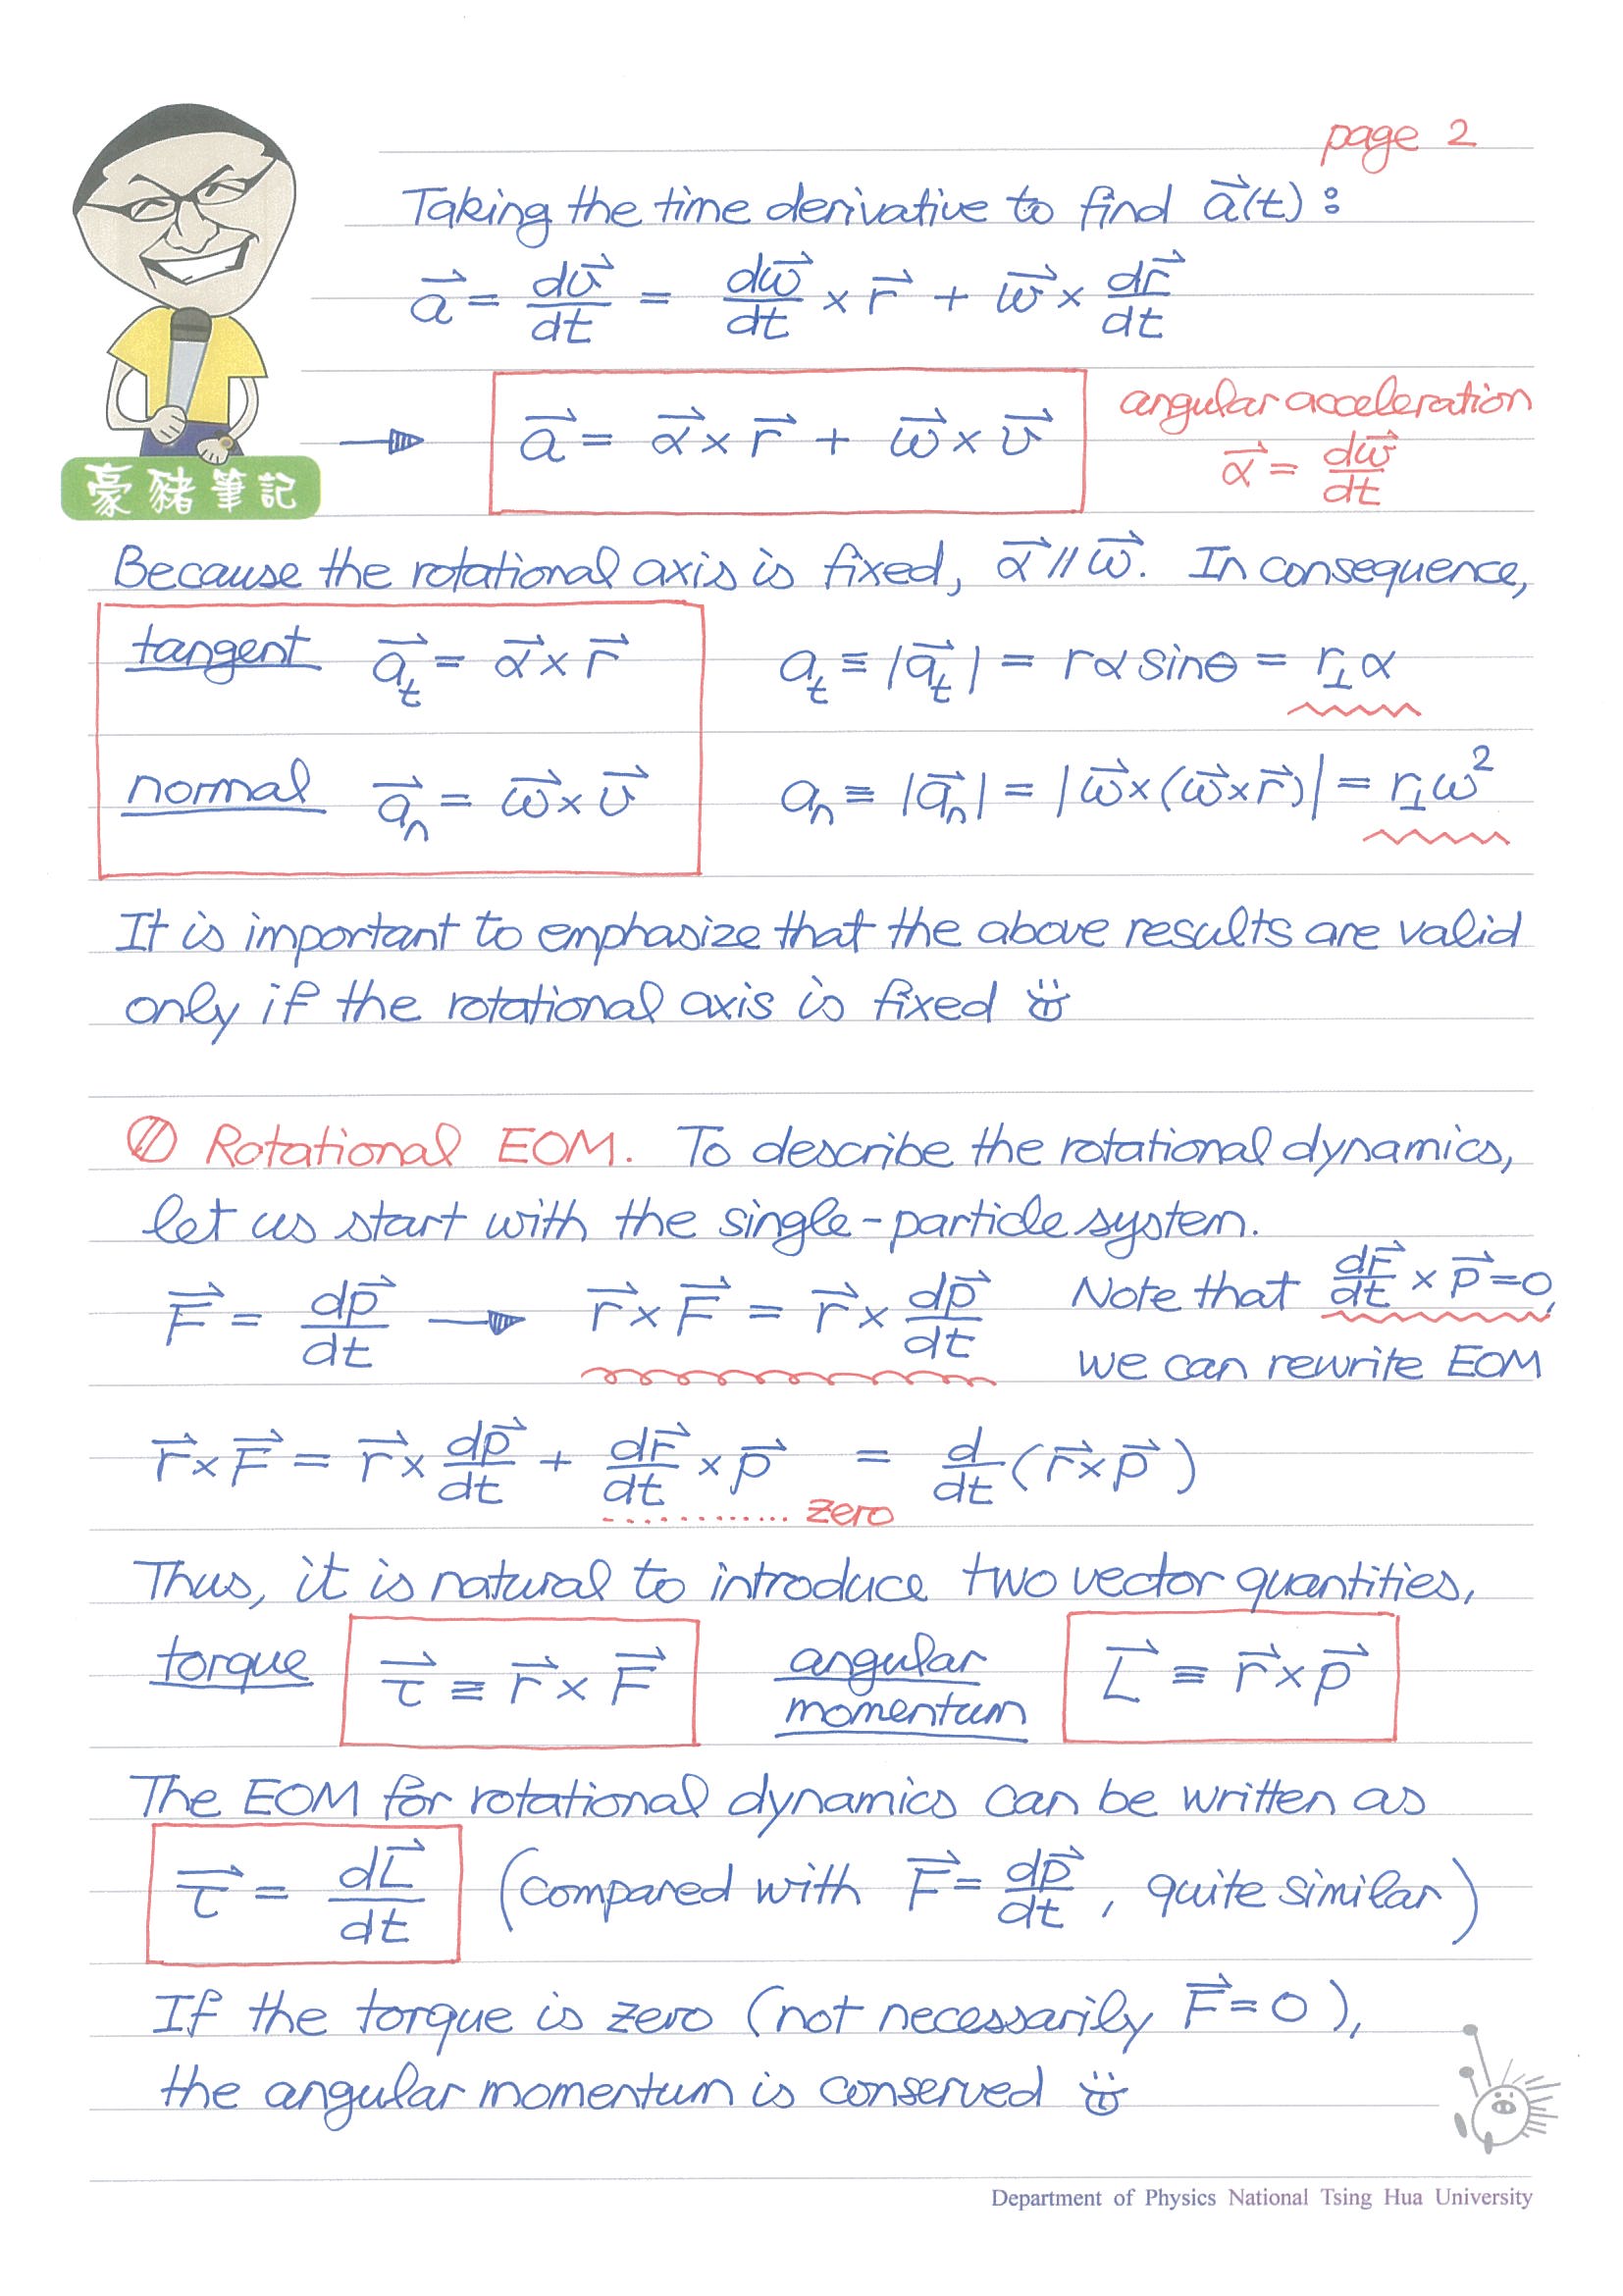 page 2
Taking the time derivative to find a⃗(t) :
a⃗ = dv⃗/dt = dω⃗/dt × r⃗ + ω⃗ × dr⃗/dt
→ a⃗ = α⃗ × r⃗ + ω⃗ × v⃗
angular acceleration
α⃗ = dω⃗/dt
豪豬筆記
Because the rotational axis is fixed, α⃗ // ω⃗. In consequence,
tangent a⃗ₜ = α⃗ × r⃗ aₜ ≡ |a⃗ₜ| = rα sinθ = r⊥α
normal a⃗ₙ = ω⃗ × v⃗ aₙ ≡ |a⃗ₙ| = |ω⃗ × (ω⃗ × r⃗)| = r⊥ω²
It is important to emphasize that the above results are valid
only if the rotational axis is fixed
Rotational EOM. To describe the rotational dynamics,
let us start with the single-particle system.
F⃗ = dp⃗/dt → r⃗ × F⃗ = r⃗ × dp⃗/dt Note that dr⃗/dt × p⃗ = 0,
we can rewrite EOM
r⃗ × F⃗ = r⃗ × dp⃗/dt + dr⃗/dt × p⃗ = d/dt (r⃗ × p⃗)
zero
Thus, it is natural to introduce two vector quantities,
torque τ⃗ ≡ r⃗ × F⃗ angular momentum L⃗ ≡ r⃗ × p⃗
The EOM for rotational dynamics can be written as
τ⃗ = dL⃗/dt (compared with F⃗ = dp⃗/dt, quite similar)
If the torque is zero (not necessarily F⃗ = 0),
the angular momentum is conserved
Department of Physics National Tsing Hua University